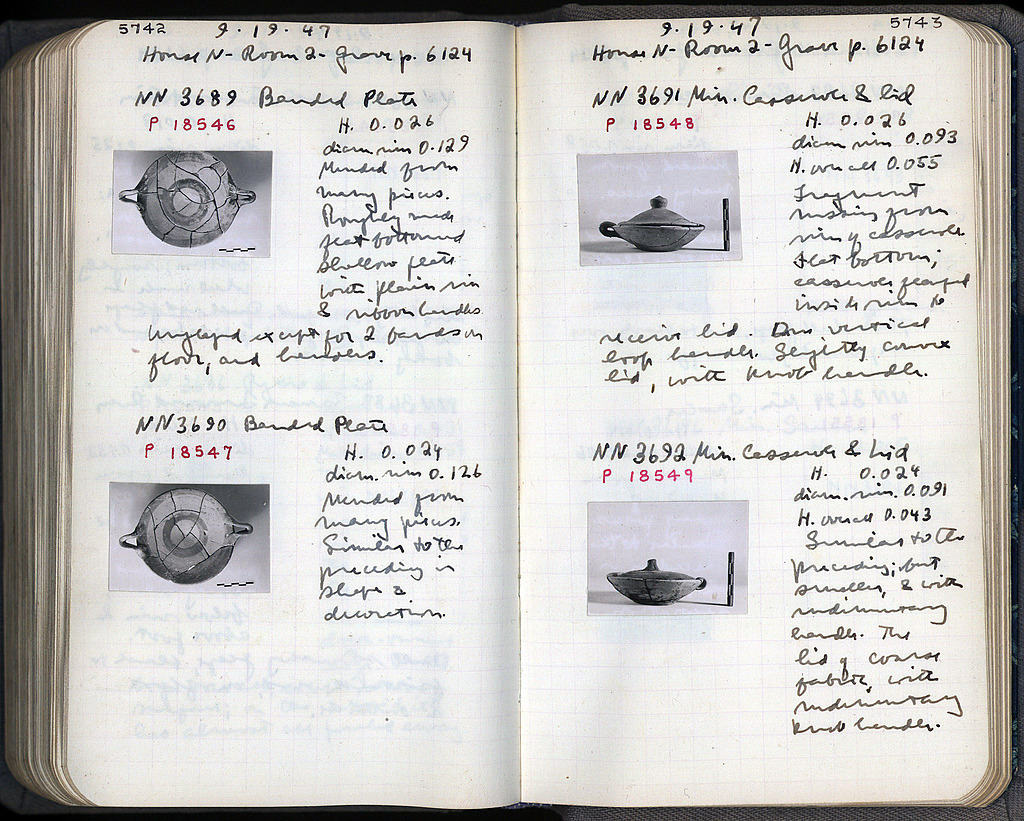 5742
9.19.47
House N- Room 2- Grave p. 6124
NN 3689 Banded Plate
P 18546
H. 0.026
diam. rim 0.129
Mended from
many pieces.
Roughly made
flat bottomed
shallow plate
with plain rim
& ribbon handles.
Unglazed except for 2 bands on
floor, and handles.
NN 3690 Banded Plate
P 18547
H. 0.024
diam. rim 0.126
Mended from
many pieces.
Similar to the
preceding in
shape &
decoration.
5743
9.19.47
House N- Room 2- Grave p. 6124
NN 3691 Min. Casserole & Lid
P 18548
H. 0.026
diam. rim 0.093
H. overall 0.055
Fragment
missing from
rim of casserole.
Flat bottom;
casserole flanged
inside rim to
receive lid. One vertical
loop handle. Slightly convex
lid, with knob handle.
NN 3692 Min. Casserole & Lid
P 18549
H. 0.024
diam. rim. 0.091
H. overall 0.043
Similar to the
preceding; but
smaller, & with
rudimentary
handle. The
lid of coarse
fabric, with
rudimentary
knob handle.